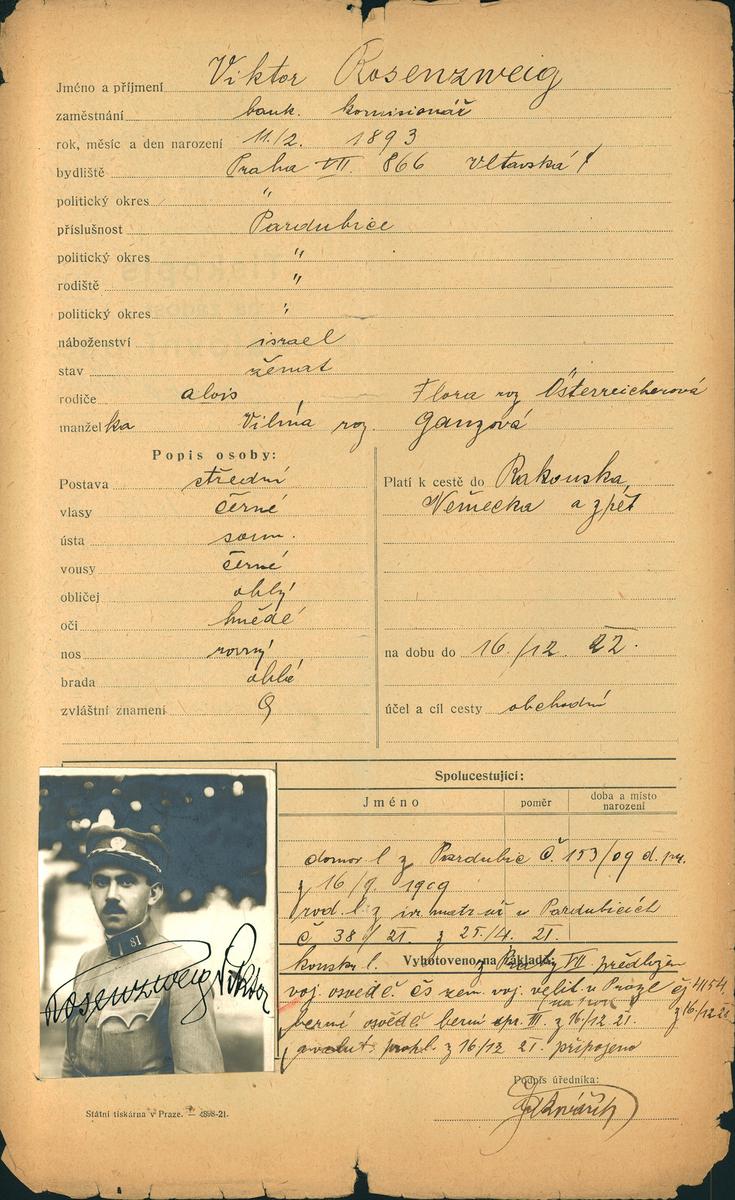 Jméno a příjmení Viktor Rosenzweig
zaměstnání bank. komisionář
rok, měsíc a den narození 11./2. 1893
bydliště Praha VII. 866 Vltavská
politický okres "
příslušnost Pardubice
politický okres "
rodiště "
politický okres "
náboženství israel
stav ženat
rodiče alois Flora roz Österreicherová
manželka Vilma roz. Ganzová
Popis osoby:
Postava střední
vlasy černé
ústa soum.
vousy černé
obličej oblý
oči hnědé
nos rovný
brada oblé
zvláštní znamení
Platí k cestě do Rakouska,
Německa a zpět
na dobu do 16./12. 22.
účel a cíl cesty obchodní
Spolucestující:
Jméno poměr doba a místo narození
domov l z Pardubic č. 153/09 d. pr.
z 16/9. 1909
rod. l. z isr matr. úř v Pardubicích
č 38/21. z 25./4. 21.
konskr l. Vyhotoveno na základě: z Prahy VII předložen
voj. osvědč. čs zem. voj. velit v Praze čj 4154
z 16/12 21
berní osvědč berní spr. III z 16/12 21.
z 16/12 21. připojeno
81
Rosenzweig Viktor
Podpis úředníka:
Státní tiskárna v Praze. — 4898-21.